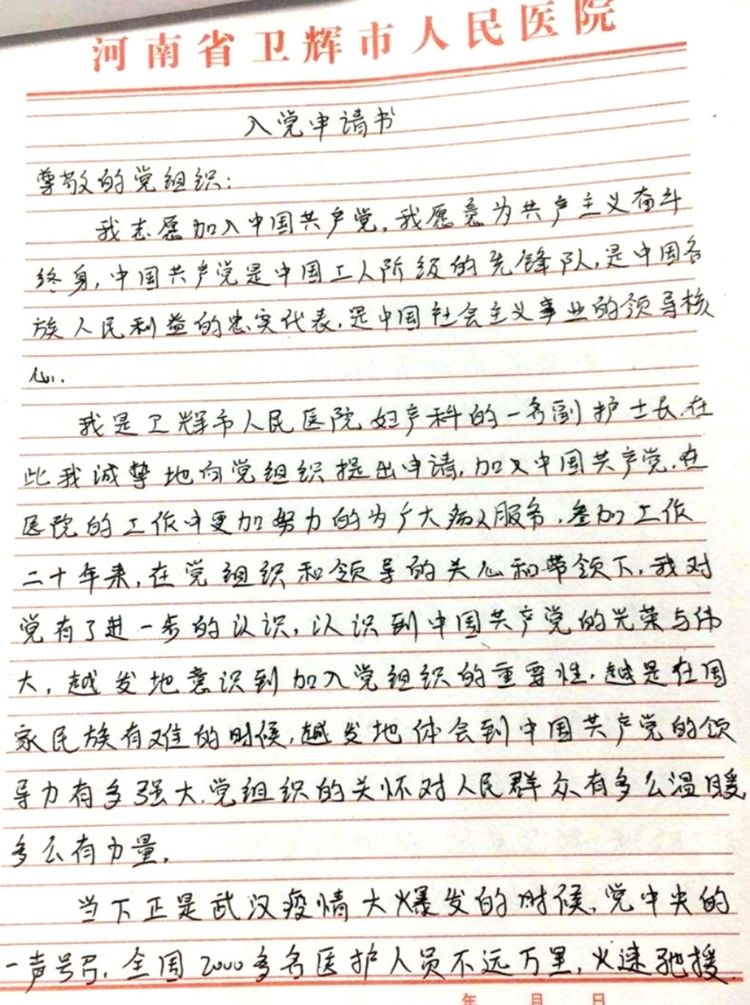 河南省卫辉市人民医院
入党申请书
尊敬的党组织:
我志愿加入中国共产党,我愿意为共产主义奋斗
终身,中国共产党是中国工人阶级的先锋队,是中国各
族人民利益的忠实代表,是中国社会主义事业的领导核
心.
我是卫辉市人民医院妇产科的一名副护士长.在
此我诚挚地向党组织提出申请,加入中国共产党.在
医院的工作中更加努力的为广大病人服务.参加工作
二十年来,在党组织和领导的关心和带领下,我对
党有了进一步的认识,认识到中国共产党的光荣与伟
大,越发地意识到加入党组织的重要性.越是在国
家民族有难的时候,越发地体会到中国共产党的领
导力有多强大.党组织的关怀对人民群众有多么温暖
多么有力量.
当下正是武汉疫情大爆发的时候,党中央的
一声号召,全国2000多名医护人员不远万里,火速驰援
年 月 日